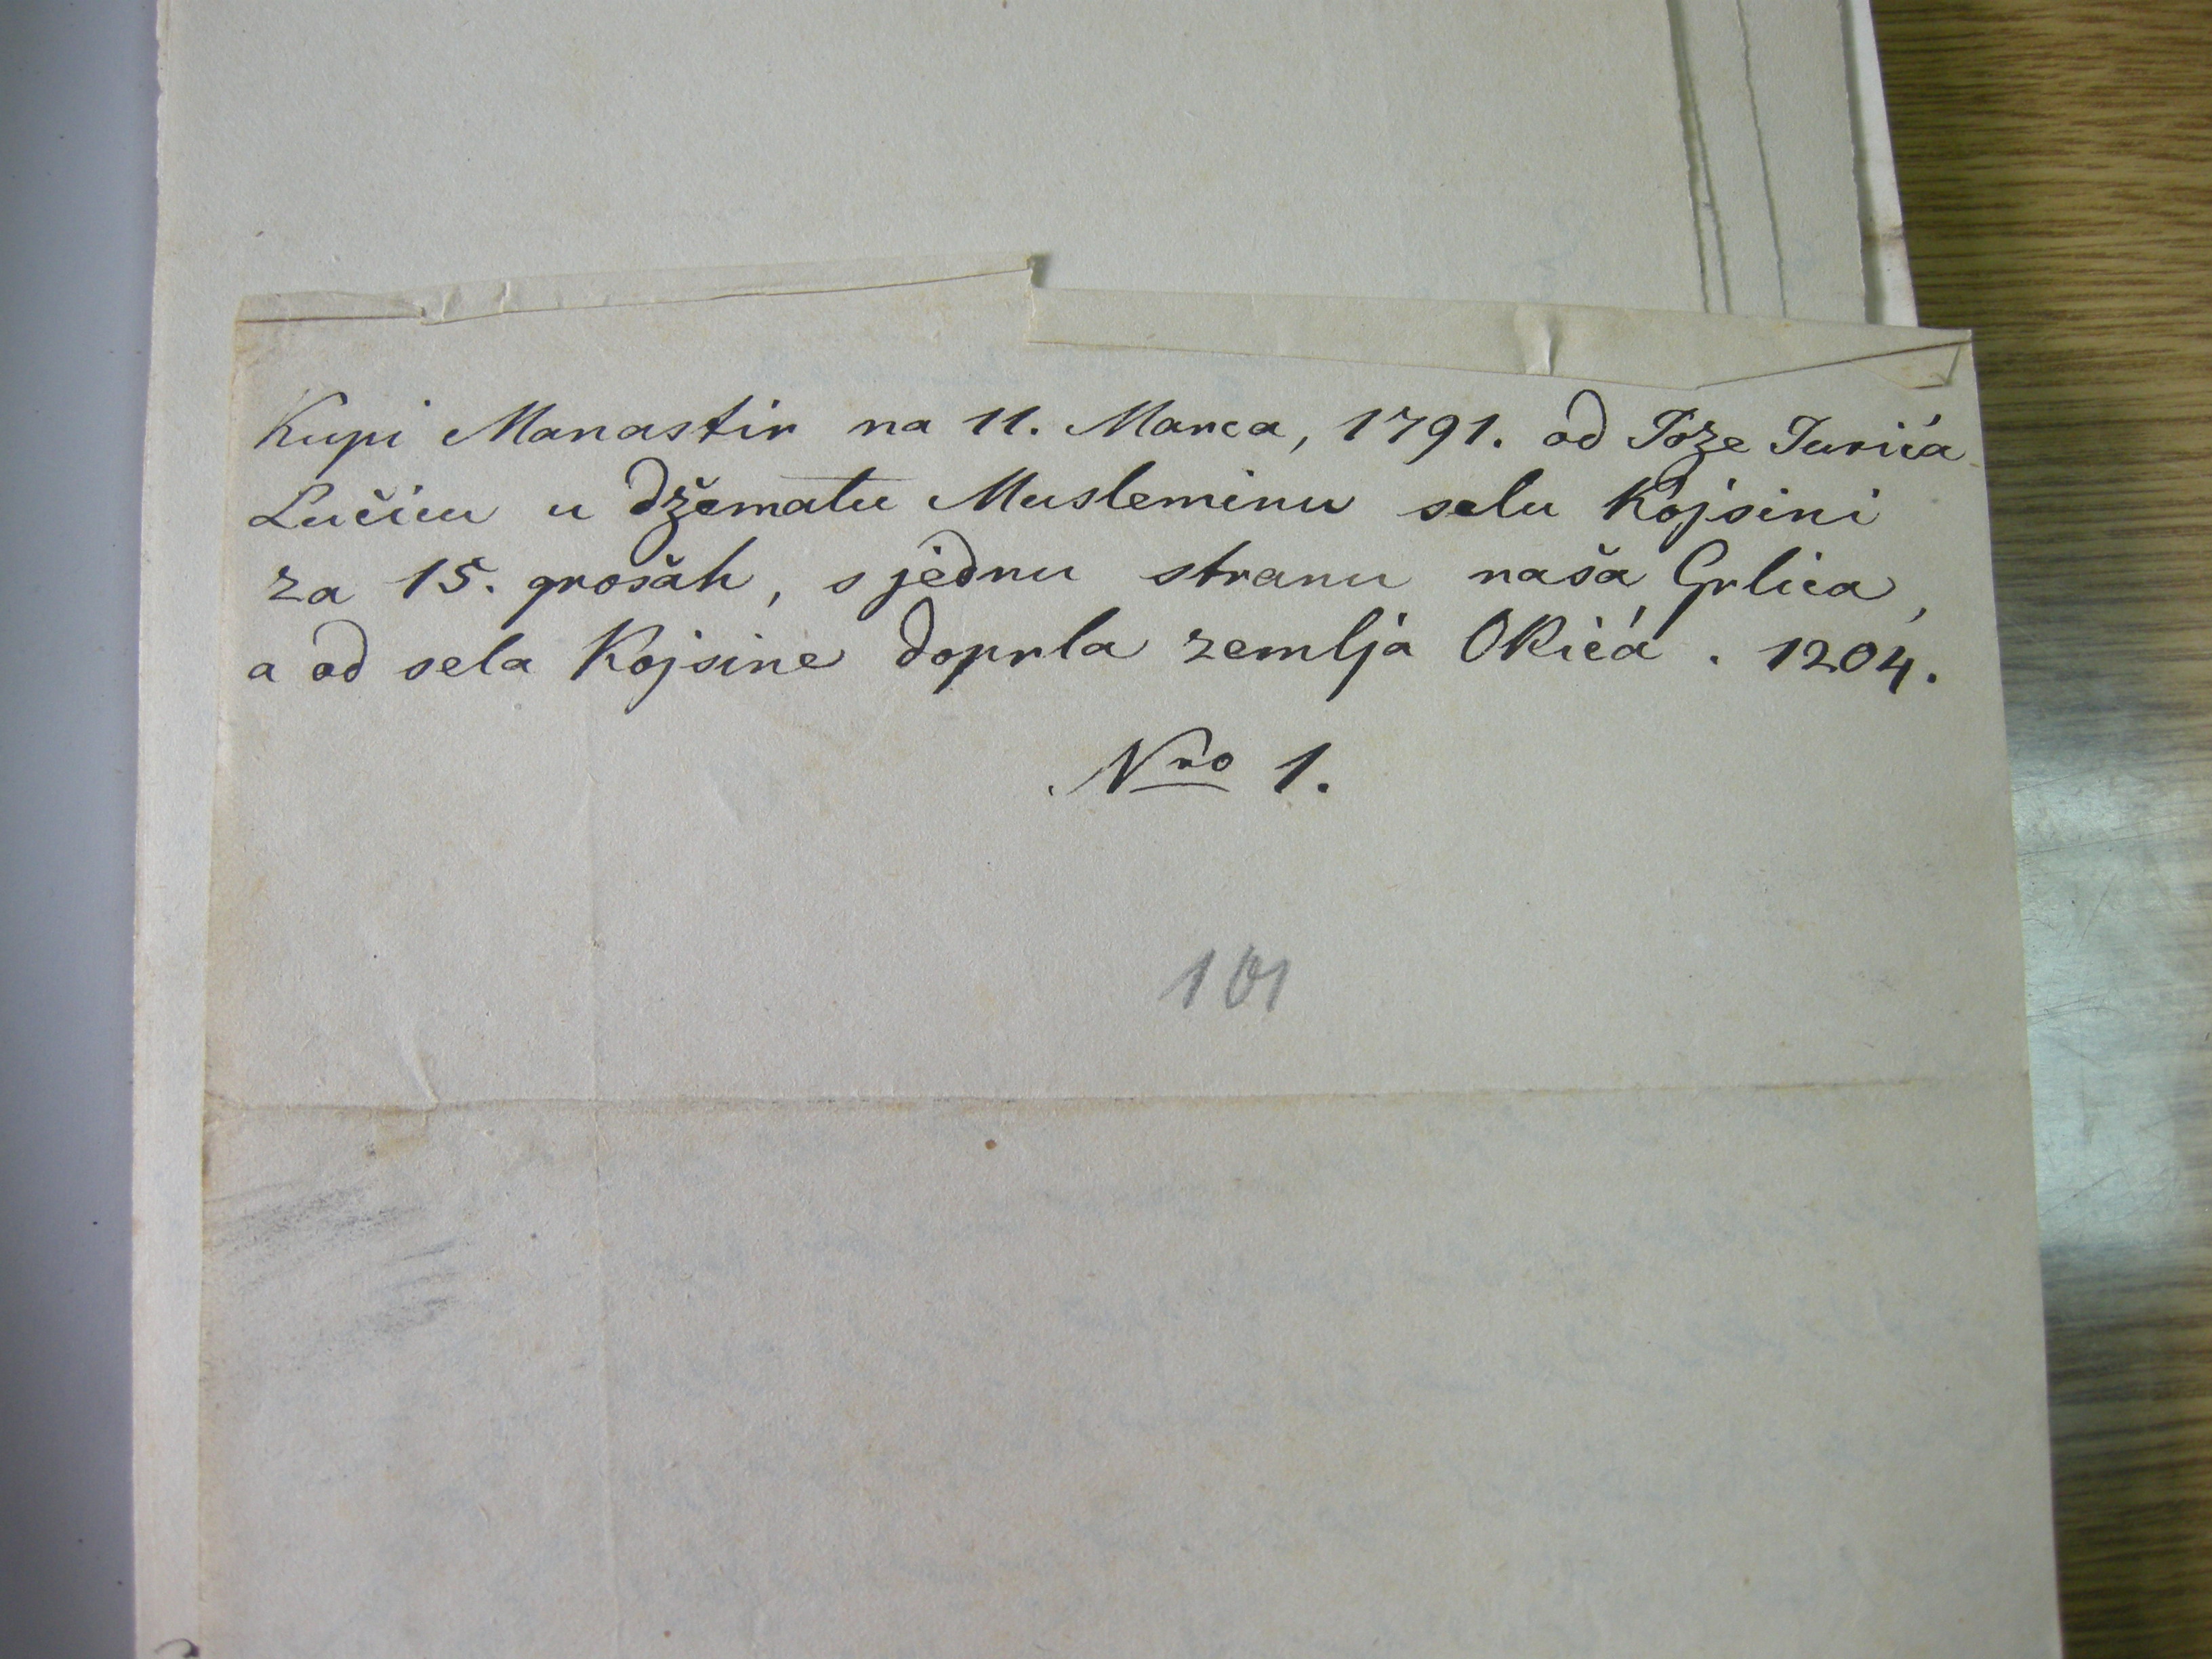 Kupi Manastir na 11. Marca, 1791. od Joze Jurića
Lučicu u džematu Musleminu selu Kojsini
za 15. grošah, s jednu stranu naša Grlica,
a od sela Kojsine doprla zemlja Okića. 1204.
Nro 1.
101